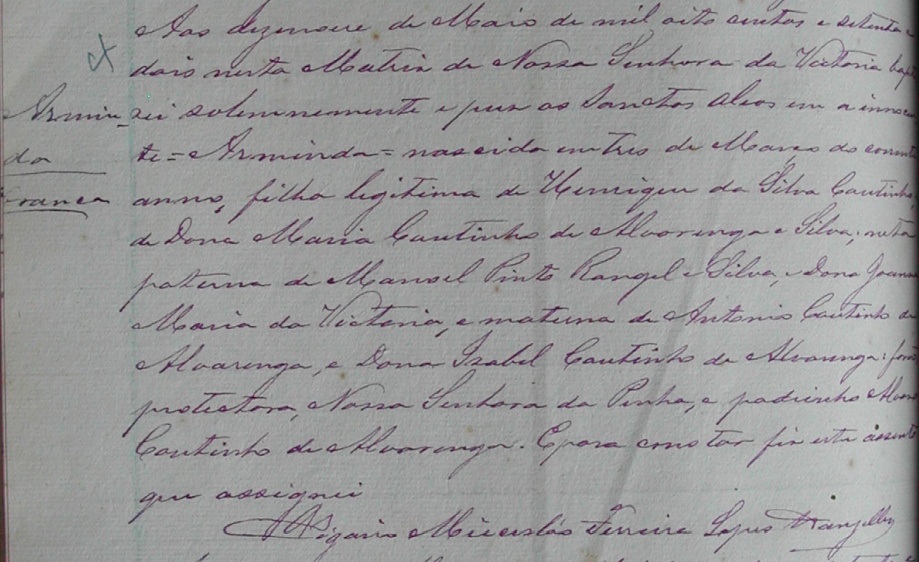 Aos dezenove de Maio de mil oito centos e setenta e
dois nesta Matriz de Nossa Senhora da Victoria bapti
Armin_
sei solemnemente e puz os Sanctos oleos em a innocen
da
te = Arminda = nascida em tres de Março do corrente
branca
anno, filha legitima de Henrique da Silva Coutinho
de Dona Maria Coutinho de Alvarenga e Silva; neta
paterna de Manoel Pinto Rangel e Silva, e Dona Joana
Maria da Victoria, e materna de Antonio Coutinho de
Alvarenga, e Dona Izabel Coutinho de Alvarenga: foi
protectora, Nossa Senhora da Penha, e padrinho
Coutinho de Alvarenga. E para constar fiz este assento
que assignei
O Vigario Miecesláo Ferreira Lopes Wanzeller